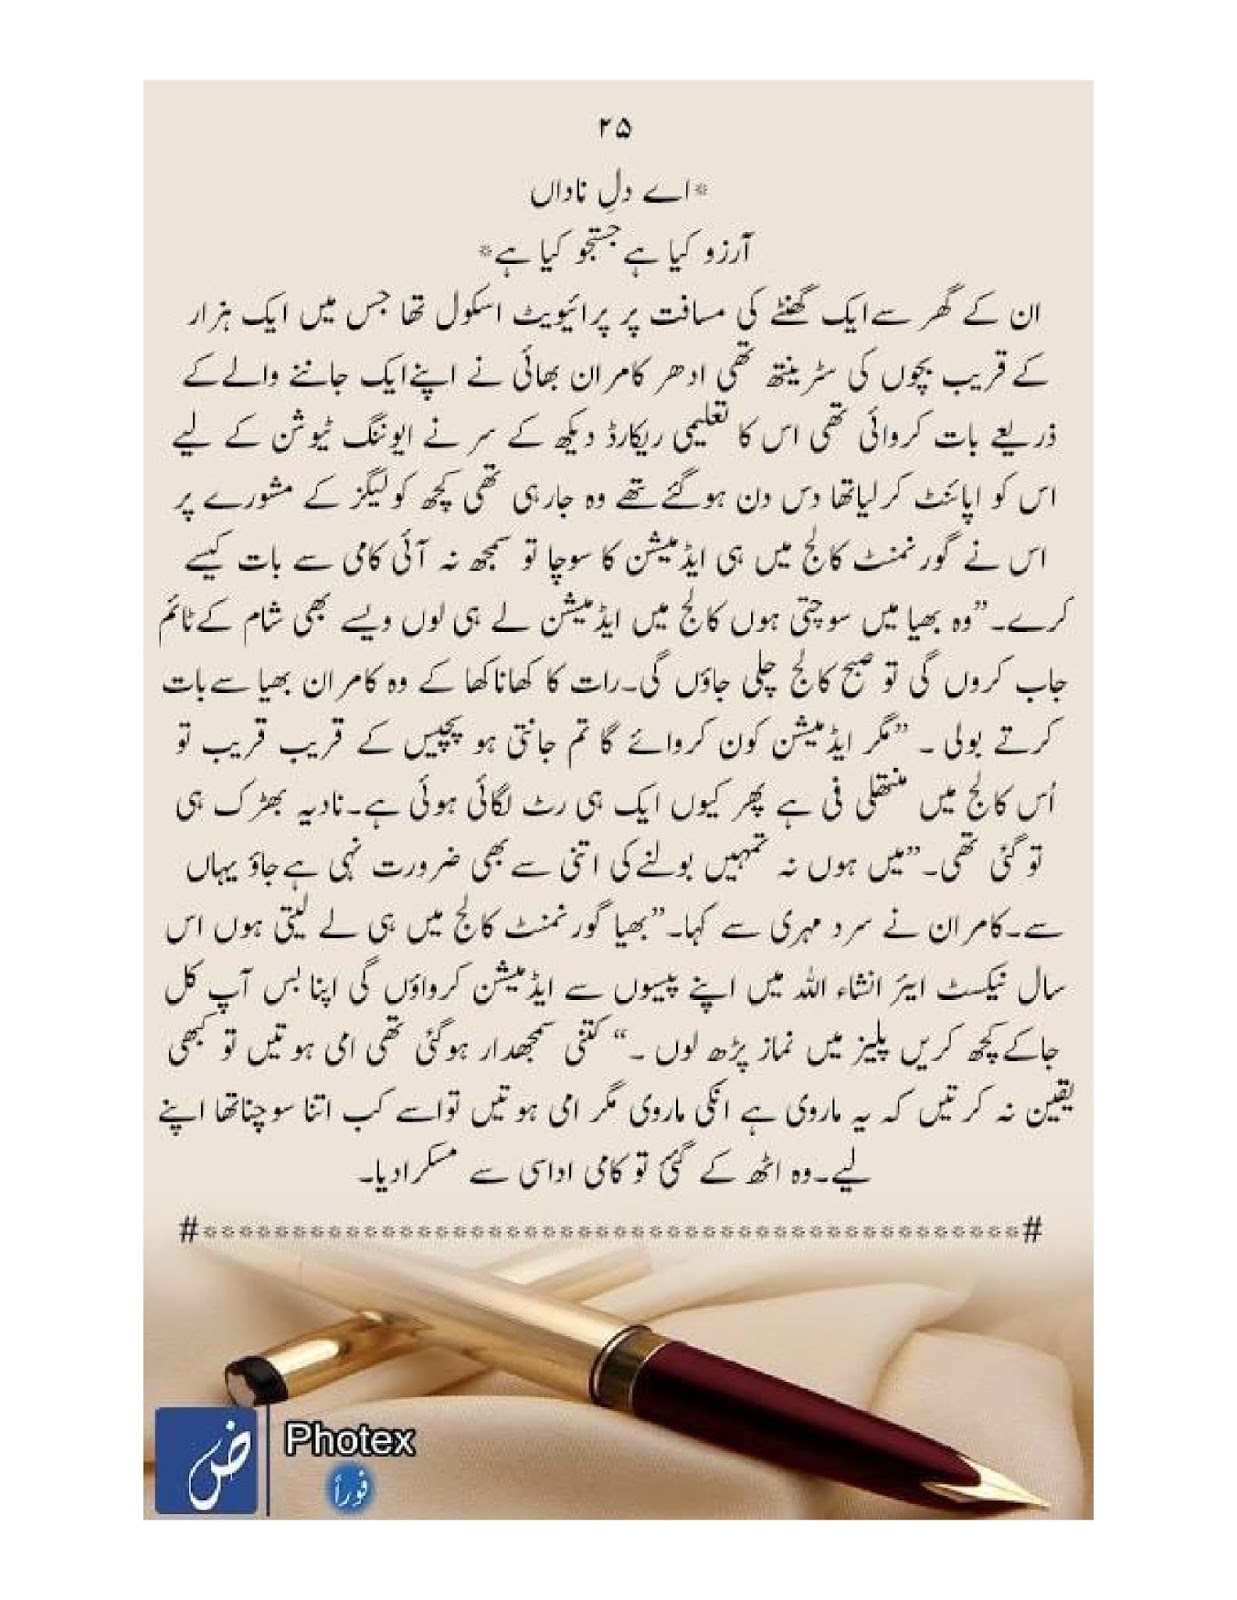 ۲۵
*اے دلِ ناداں
آرزو کیا ہے جستجو کیا ہے*
ان کے گھر سے ایک گھنٹے کی مسافت پر پرائیویٹ اسکول تھا جس میں ایک ہزار
کے قریب بچوں کی سٹرینتھ تھی ادھر کامران بھائی نے اپنے ایک جاننے والے کے
ذریعے بات کروائی تھی اس کا تعلیمی ریکارڈ دیکھ کے سر نے ایوننگ ٹیوشن کے لیے
اس کو اپائنٹ کر لیا تھا دس دن ہوگئے تھے وہ جارہی تھی کچھ کولیگز کے مشورے پر
اس نے گورنمنٹ کالج میں ہی ایڈمیشن کا سوچا تو سمجھ نہ آئی کامی سے بات کیسے
کرے۔”وہ بھیا میں سوچتی ہوں کالج میں ایڈمیشن لے ہی لوں ویسے بھی شام کے ٹائم
جاب کروں گی تو صبح کالج چلی جاؤں گی۔رات کا کھانا کھا کے وہ کامران بھیا سے بات
کرتے بولی ۔ ”مگر ایڈمیشن کون کروائے گا تم جانتی ہو پچیس کے قریب قریب تو
اُس کالج میں منتھلی فی ہے پھر کیوں ایک ہی رٹ لگائی ہوئی ہے۔نادیہ بھڑک ہی
تو گئی تھی۔”میں ہوں نہ تمہیں بولنے کی اتنی سے بھی ضرورت نہی ہے جاؤ یہاں
سے۔کامران نے سرد مہری سے کہا۔”بھیا گورنمنٹ کالج میں ہی لے لیتی ہوں اس
سال نیکسٹ ایئر انشاء اللہ میں اپنے پیسوں سے ایڈمیشن کرواؤں گی اپنا بس آپ کل
جا کے کچھ کریں پلیز میں نماز پڑھ لوں ۔“ کتنی سمجھدار ہوگئی تھی امی ہوتیں تو کبھی
یقین نہ کرتیں کہ یہ ماروی ہے انکی ماروی مگر امی ہوتیں تو اسے کب اتنا سوچنا تھا اپنے
لیے۔وہ اٹھ کے گئی تو کامی اداسی سے مسکرا دیا۔
#**********************************************#
ض
Photex
فوراً